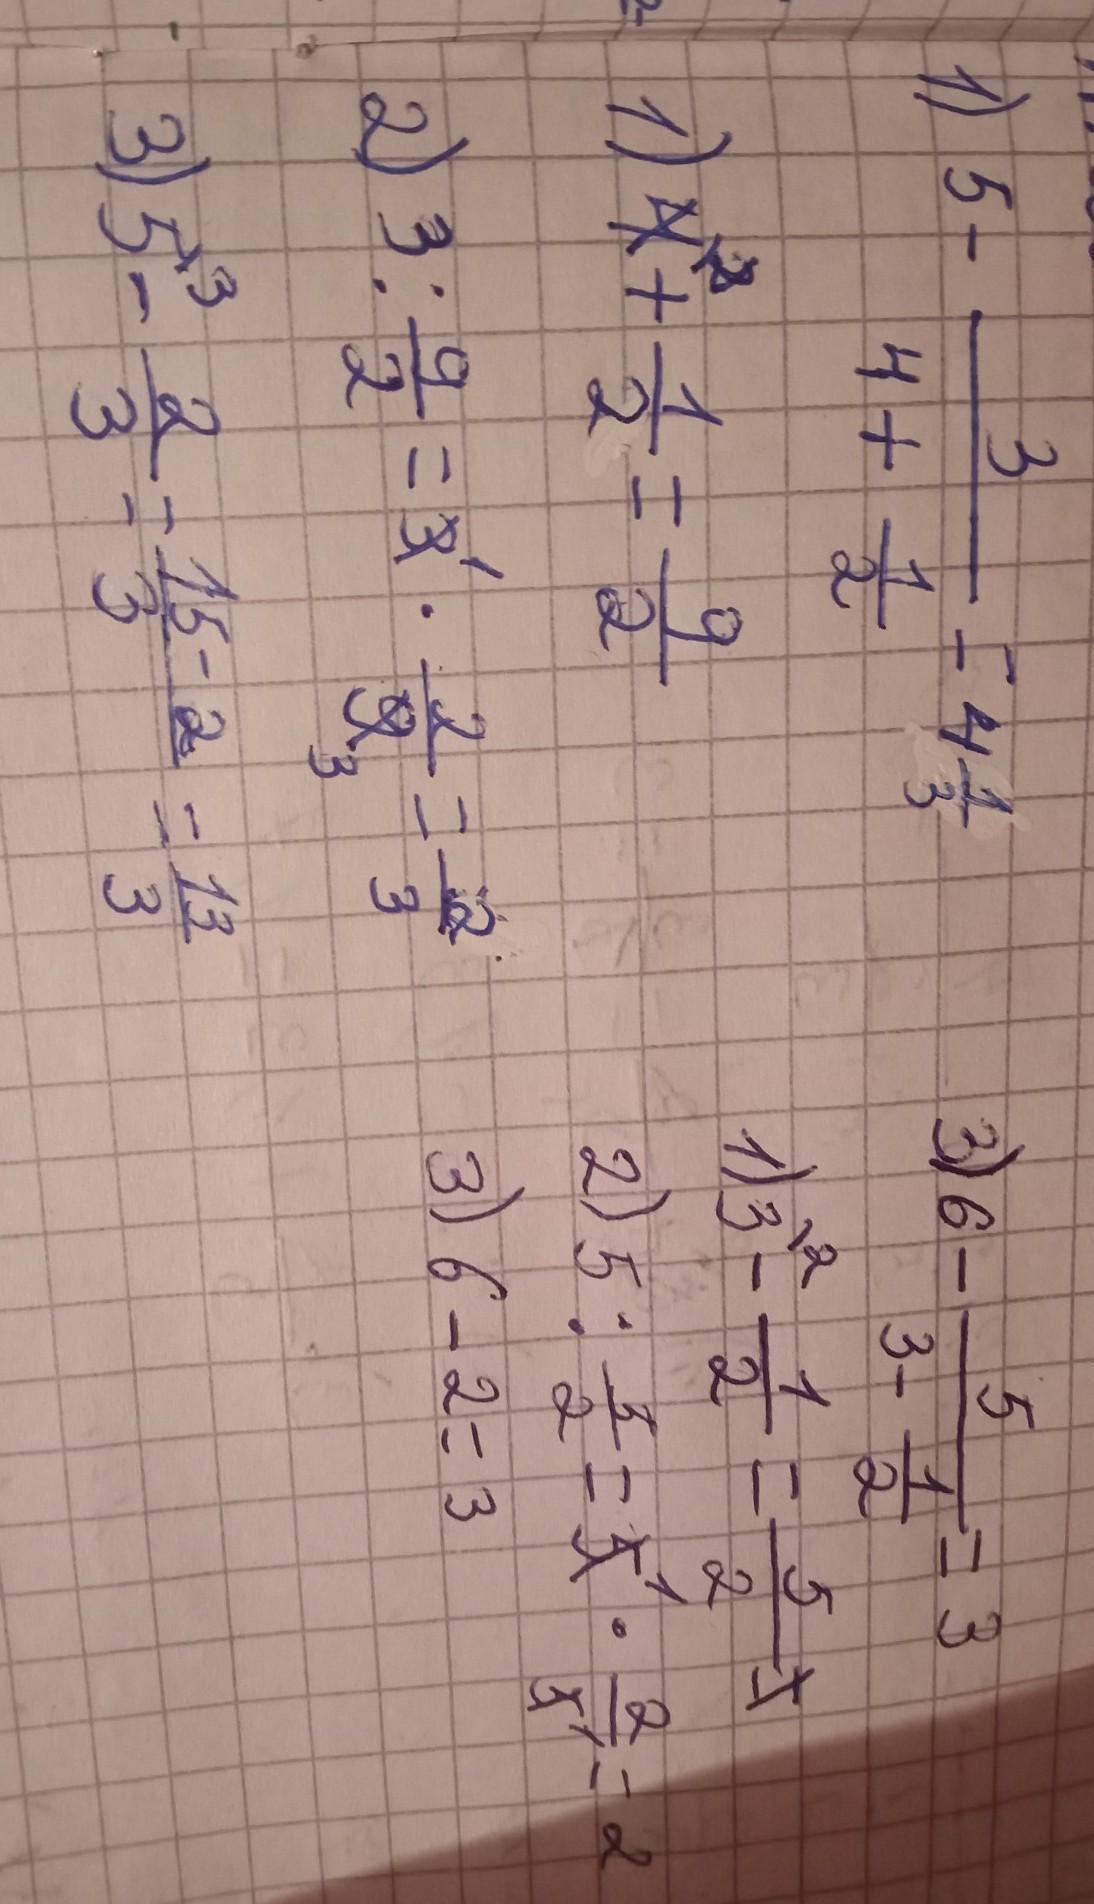 1) 5 - 3/(4 + 1/2) = 4 1/3
1) 4\2 + 1/2 = 9/2
2) 3 : 9/2 = 3 1 · 2/9 3 = 2/3
3) 5\3 - 2/3 = (15 - 2)/3 = 13/3
3) 6 - 5/(3 - 1/2) = 3
1) 3\2 - 1/2 = 5/2
2) 5 : 5/2 = 5 1 · 2/5 1 = 2
3) 6 - 2 = 3